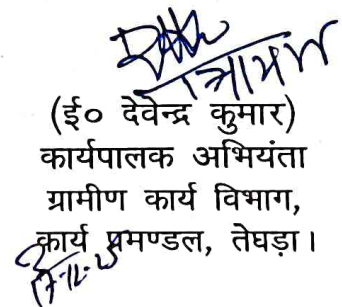 (ई० देवेन्द्र कुमार)
कार्यपालक अभियंता
ग्रामीण कार्य विभाग,
कार्य प्रमण्डल, तेघड़ा।